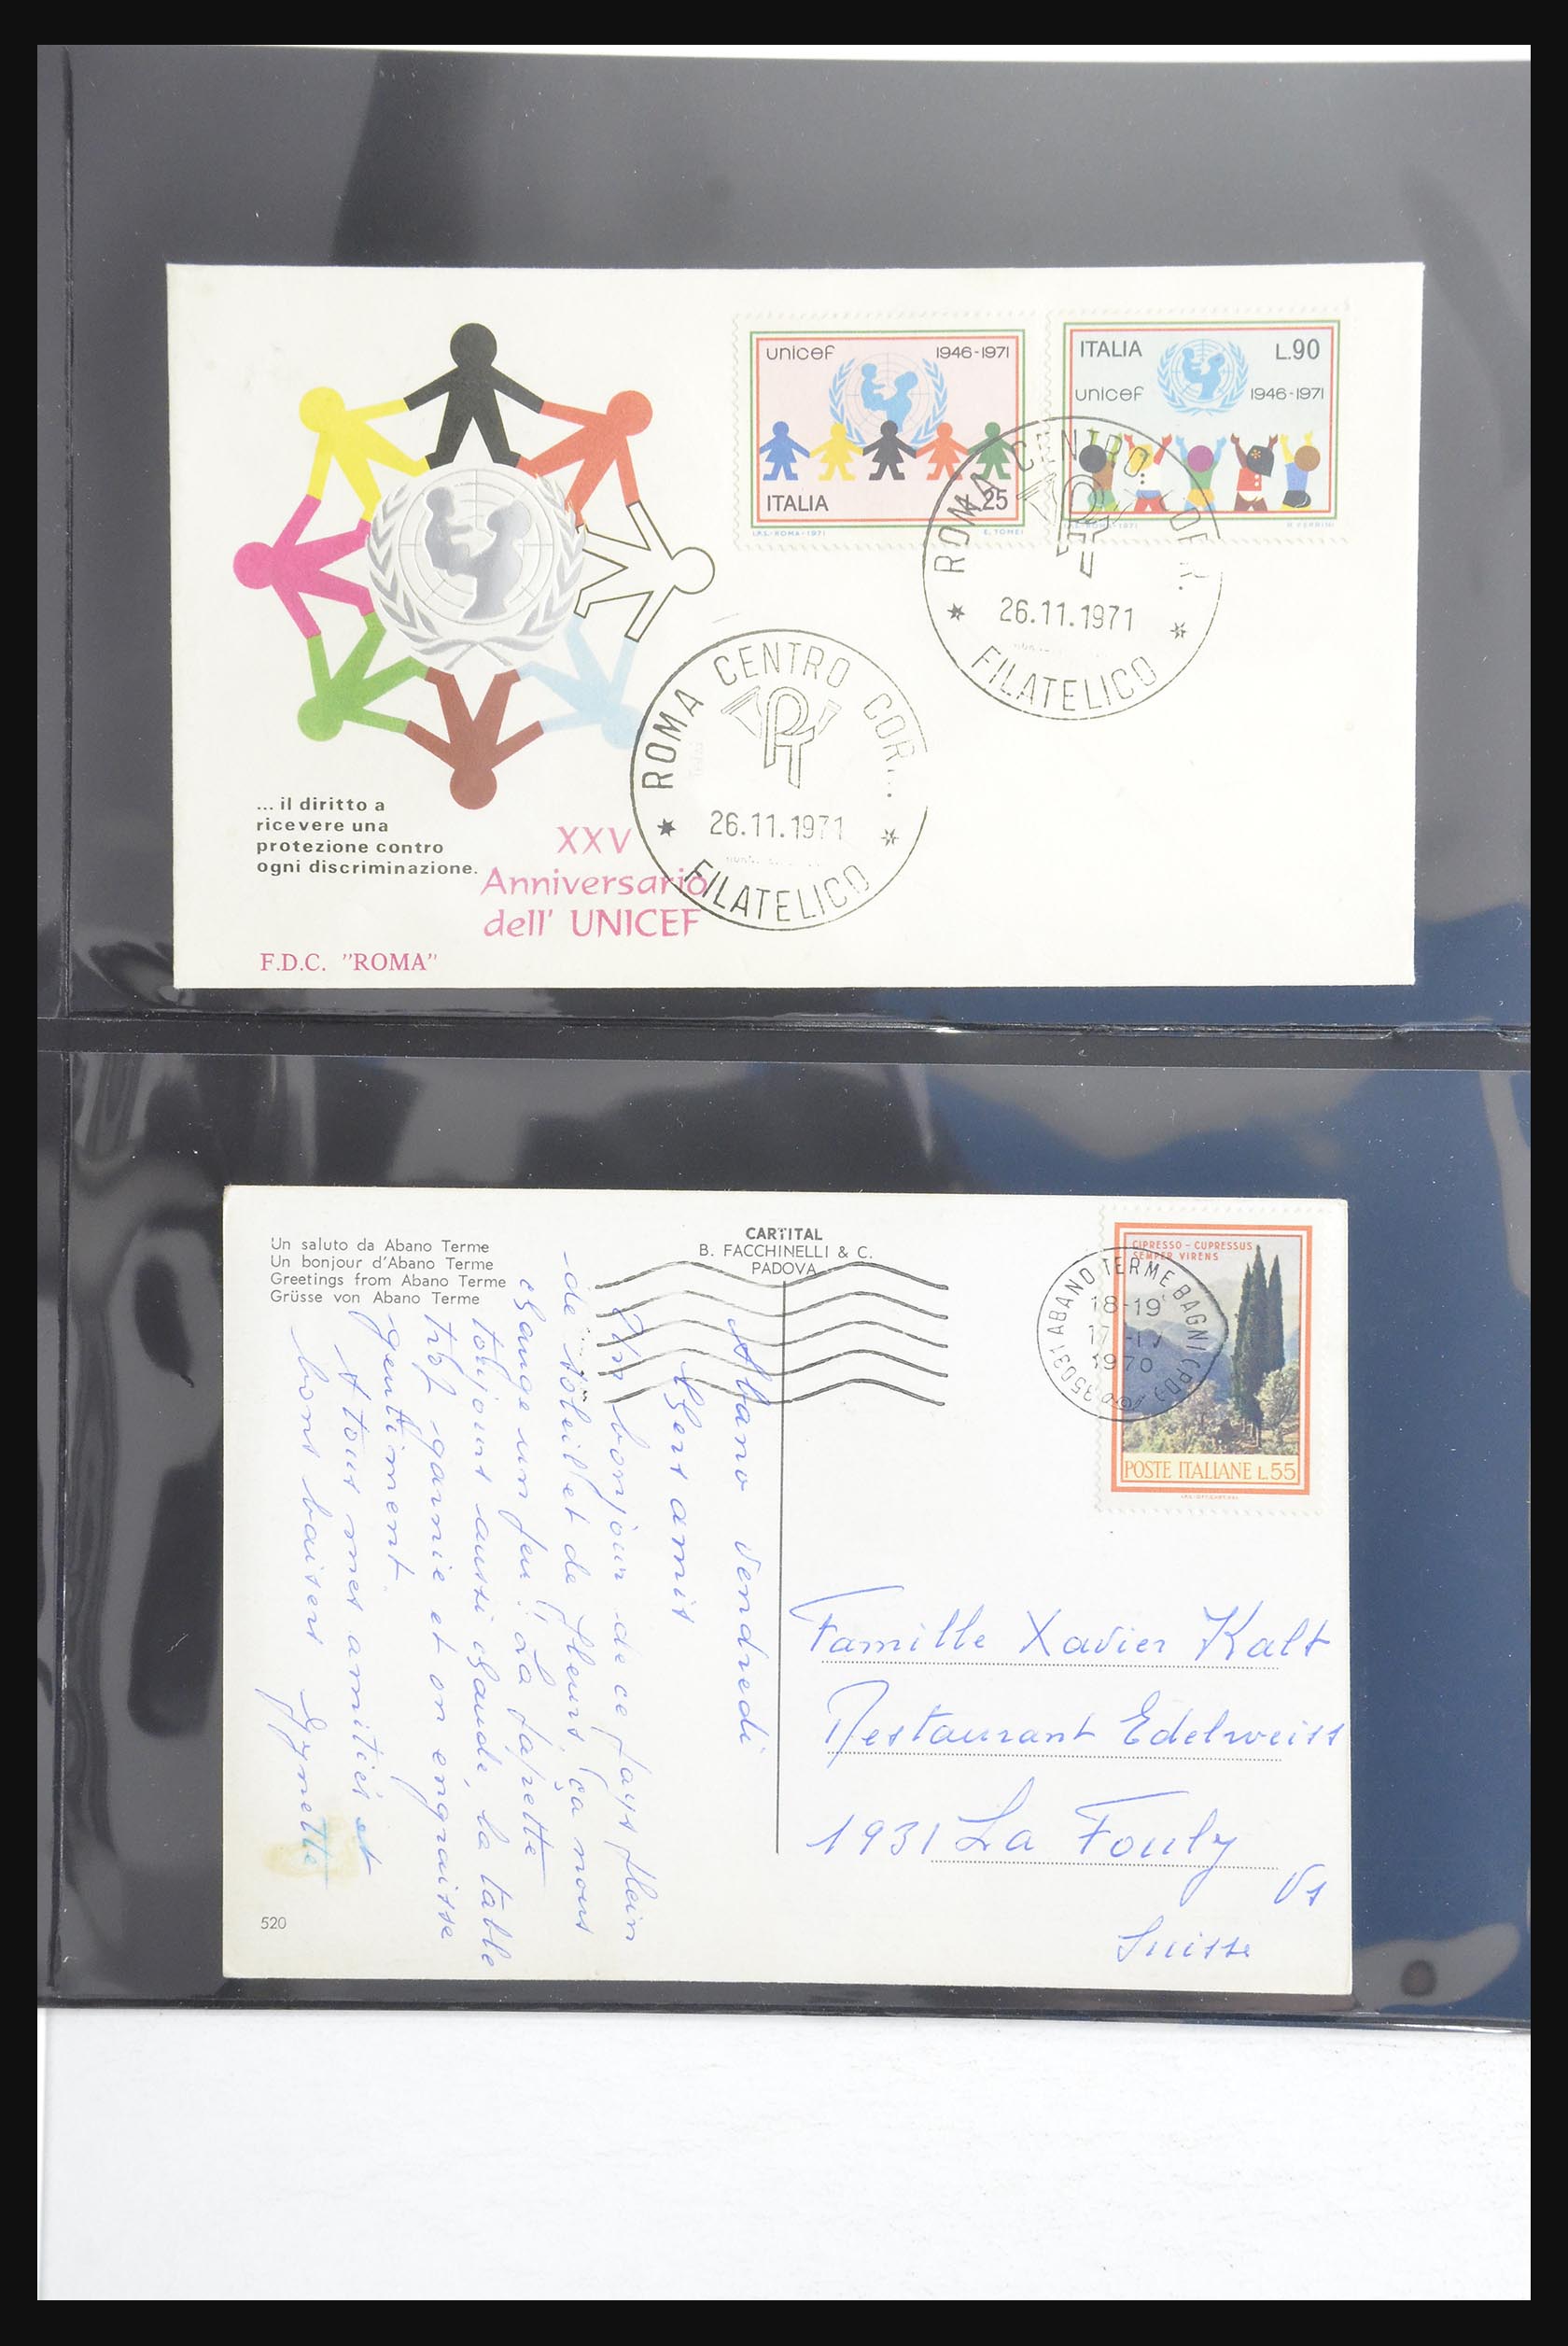 unicef 1946-1971
ITALIA 25
I.P.S.-ROMA-1971 E. TOMEI
ITALIA L.90
unicef 1946-1971
I.P.S.-ROMA-1971
ROMA CENTRO COR.
26.11.1971
FILATELICO
ROMA CENTRO COR.
26.11.1971
FILATELICO
... il diritto a
ricevere una
protezione contro
ogni discriminazione.
XXV
Anniversario
dell' UNICEF
F.D.C. "ROMA"
Un saluto da Abano Terme
Un bonjour d'Abano Terme
Greetings from Abano Terme
Grüsse von Abano Terme
CARTITAL
B. FACCHINELLI & C.
PADOVA
CIPRESSO - CUPRESSUS
SEMPER VIRENS
POSTE ITALIANE L.55
35031 ABANO TERME BAGNI (PD)
18-19
1970
Abano vendredi
Chers amis
bonjour de ce pays plein
de soleil et de fleurs, ça nous
change un peu!! La
toujours aussi chaude, la table
trop garnie et on engraisse
gentiment.
A tous mes amitiés et
bons baisers Gynette
Famille Xavier Kalt
Restaurant Edelweiss
1931 La Fouly
Vs
Suisse
520